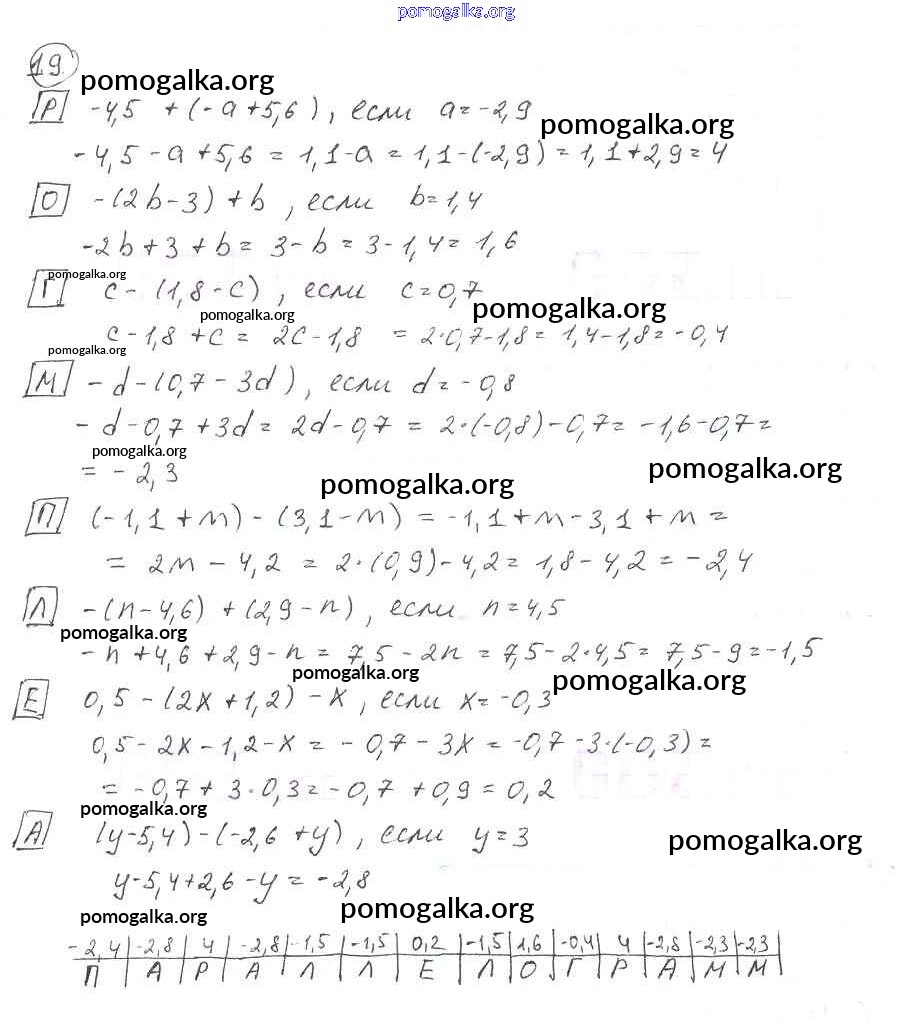 pomogalka.org
19.
pomogalka.org
Р -4,5 + (-a+5,6), если a=-2,9
pomogalka.org
-4,5-a+5,6 = 1,1-a = 1,1-(-2,9) = 1,1+2,9=4
О -(2b-3)+b, если b=1,4
-2b+3+b = 3-b = 3-1,4= 1,6
pomogalka.org
Г c-(1,8-c), если c=0,7
pomogalka.org
pomogalka.org
c-1,8+c = 2c-1,8 = 2·0,7-1,8= 1,4-1,8= -0,4
pomogalka.org
М -d-(0,7-3d), если d=-0,8
-d-0,7+3d= 2d-0,7 = 2·(-0,8)-0,7= -1,6-0,7=
pomogalka.org
= -2,3
pomogalka.org
pomogalka.org
П (-1,1+m)-(3,1-m) = -1,1+m-3,1+m =
= 2m-4,2 = 2·(0,9)-4,2= 1,8-4,2=-2,4
Л -(n-4,6)+(2,9-n), если n=4,5
pomogalka.org
-n+4,6+2,9-n = 7,5-2n = 7,5-2·4,5= 7,5-9=-1,5
pomogalka.org
pomogalka.org
Е 0,5-(2x+1,2)-x, если x=-0,3
0,5-2x-1,2-x = -0,7-3x = -0,7-3·(-0,3)=
= -0,7+3·0,3= -0,7+0,9=0,2
pomogalka.org
А (y-5,4)-(-2,6+y), если y=3
pomogalka.org
y-5,4+2,6-y=-2,8
pomogalka.org
pomogalka.org
-2,4 -2,8 4 -2,8 -1,5 -1,5 0,2 -1,5 1,6 -0,4 4 -2,8 -2,3 -2,3
П А Р А Л Л Е Л О Г Р А М М